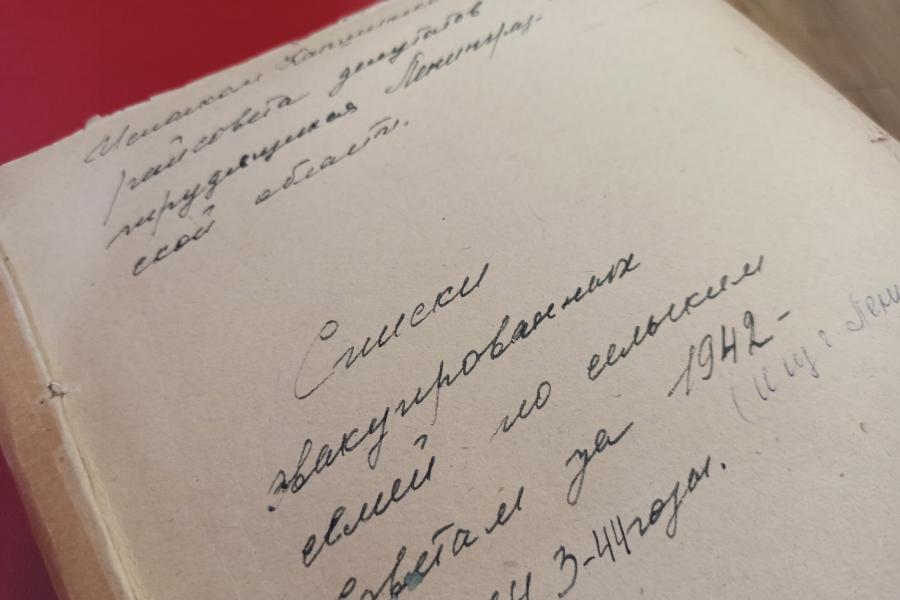 Исполком Капшинско
райсовета депутатов
трудящихся Ленинград-
ской области.
Списки
эвакуированных
семей по сельским
Советам за 1942-
3-44 годы.
(и из г. Лени